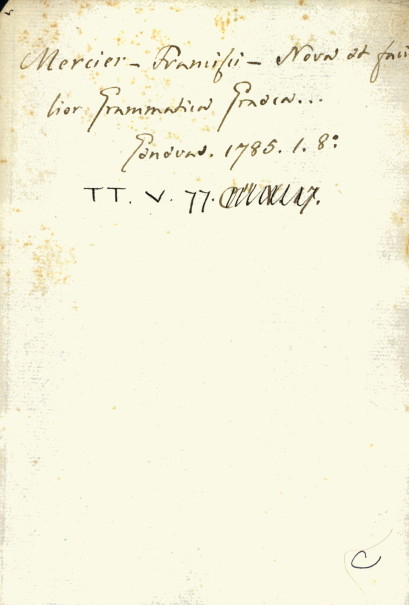 Mercier - Francisci - Nova et faci
lior Grammatica Graeca...
Genevae. 1785. 1. 8:
TT. V. 77.
C